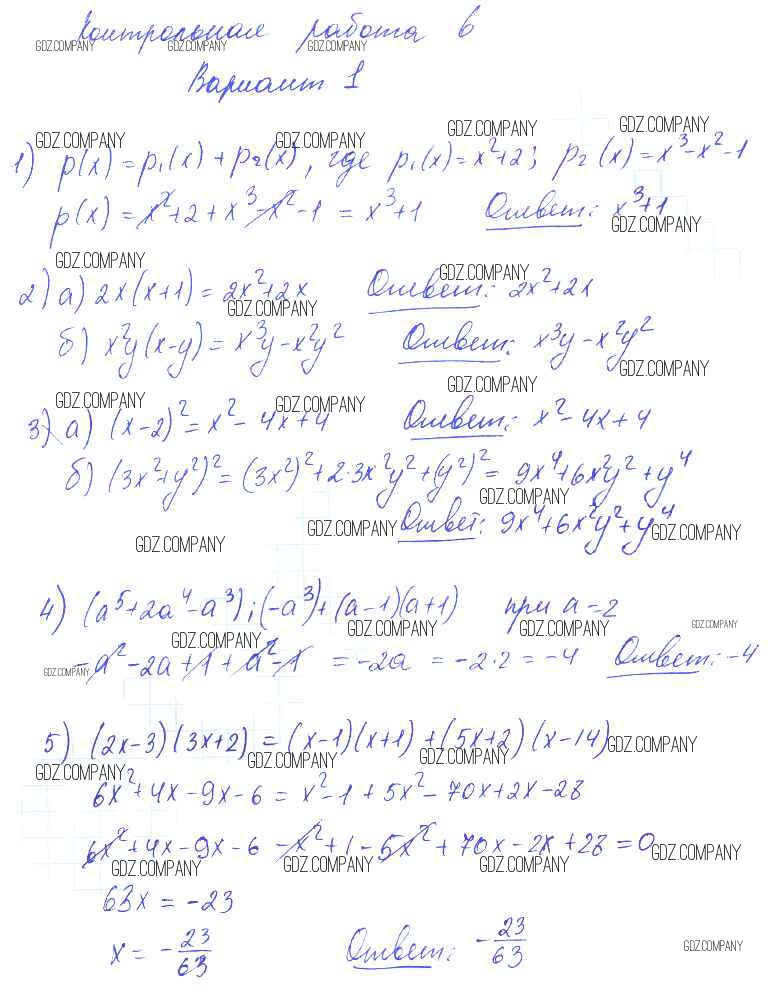 Контрольная работа 6
GDZ.COMPANY GDZ.COMPANY GDZ.COMPANY GDZ.COMPANY
Вариант 1
GDZ.COMPANY GDZ.COMPANY GDZ.COMPANY GDZ.COMPANY
1) p(x) = p₁(x) + p₂(x), где p₁(x) = x²+2; p₂(x) = x³-x²-1
p(x) = x²+2+x³-x²-1 = x³+1 Ответ: x³+1
GDZ.COMPANY
GDZ.COMPANY GDZ.COMPANY
2) а) 2x(x+1) = 2x²+2x Ответ: 2x²+2x
GDZ.COMPANY
б) x²y(x-y) = x³y-x²y² Ответ: x³y-x²y²
GDZ.COMPANY
GDZ.COMPANY GDZ.COMPANY GDZ.COMPANY
3) а) (x-2)² = x²-4x+4 Ответ: x²-4x+4
б) (3x²+y²)² = (3x²)²+2·3x²y²+(y²)² = 9x⁴+6x²y²+y⁴
GDZ.COMPANY
Ответ: 9x⁴+6x²y²+y⁴
GDZ.COMPANY GDZ.COMPANY GDZ.COMPANY
4) (a⁵+2a⁴-a³):(-a³)+(a-1)(a+1) при a=2
GDZ.COMPANY GDZ.COMPANY GDZ.COMPANY GDZ.COMPANY
=-a²-2a+1+a²-1 = -2a = -2·2 = -4 Ответ: -4
GDZ.COMPANY
5) (2x-3)(3x+2) = (x-1)(x+1)+(5x+2)(x-14)
GDZ.COMPANY GDZ.COMPANY GDZ.COMPANY GDZ.COMPANY
6x²+4x-9x-6 = x²-1+5x²-70x+2x-28
6x²+4x-9x-6-x²+1-5x²+70x-2x+28=0
GDZ.COMPANY GDZ.COMPANY GDZ.COMPANY GDZ.COMPANY
63x = -23
x = -23/63 Ответ: -23/63
GDZ.COMPANY